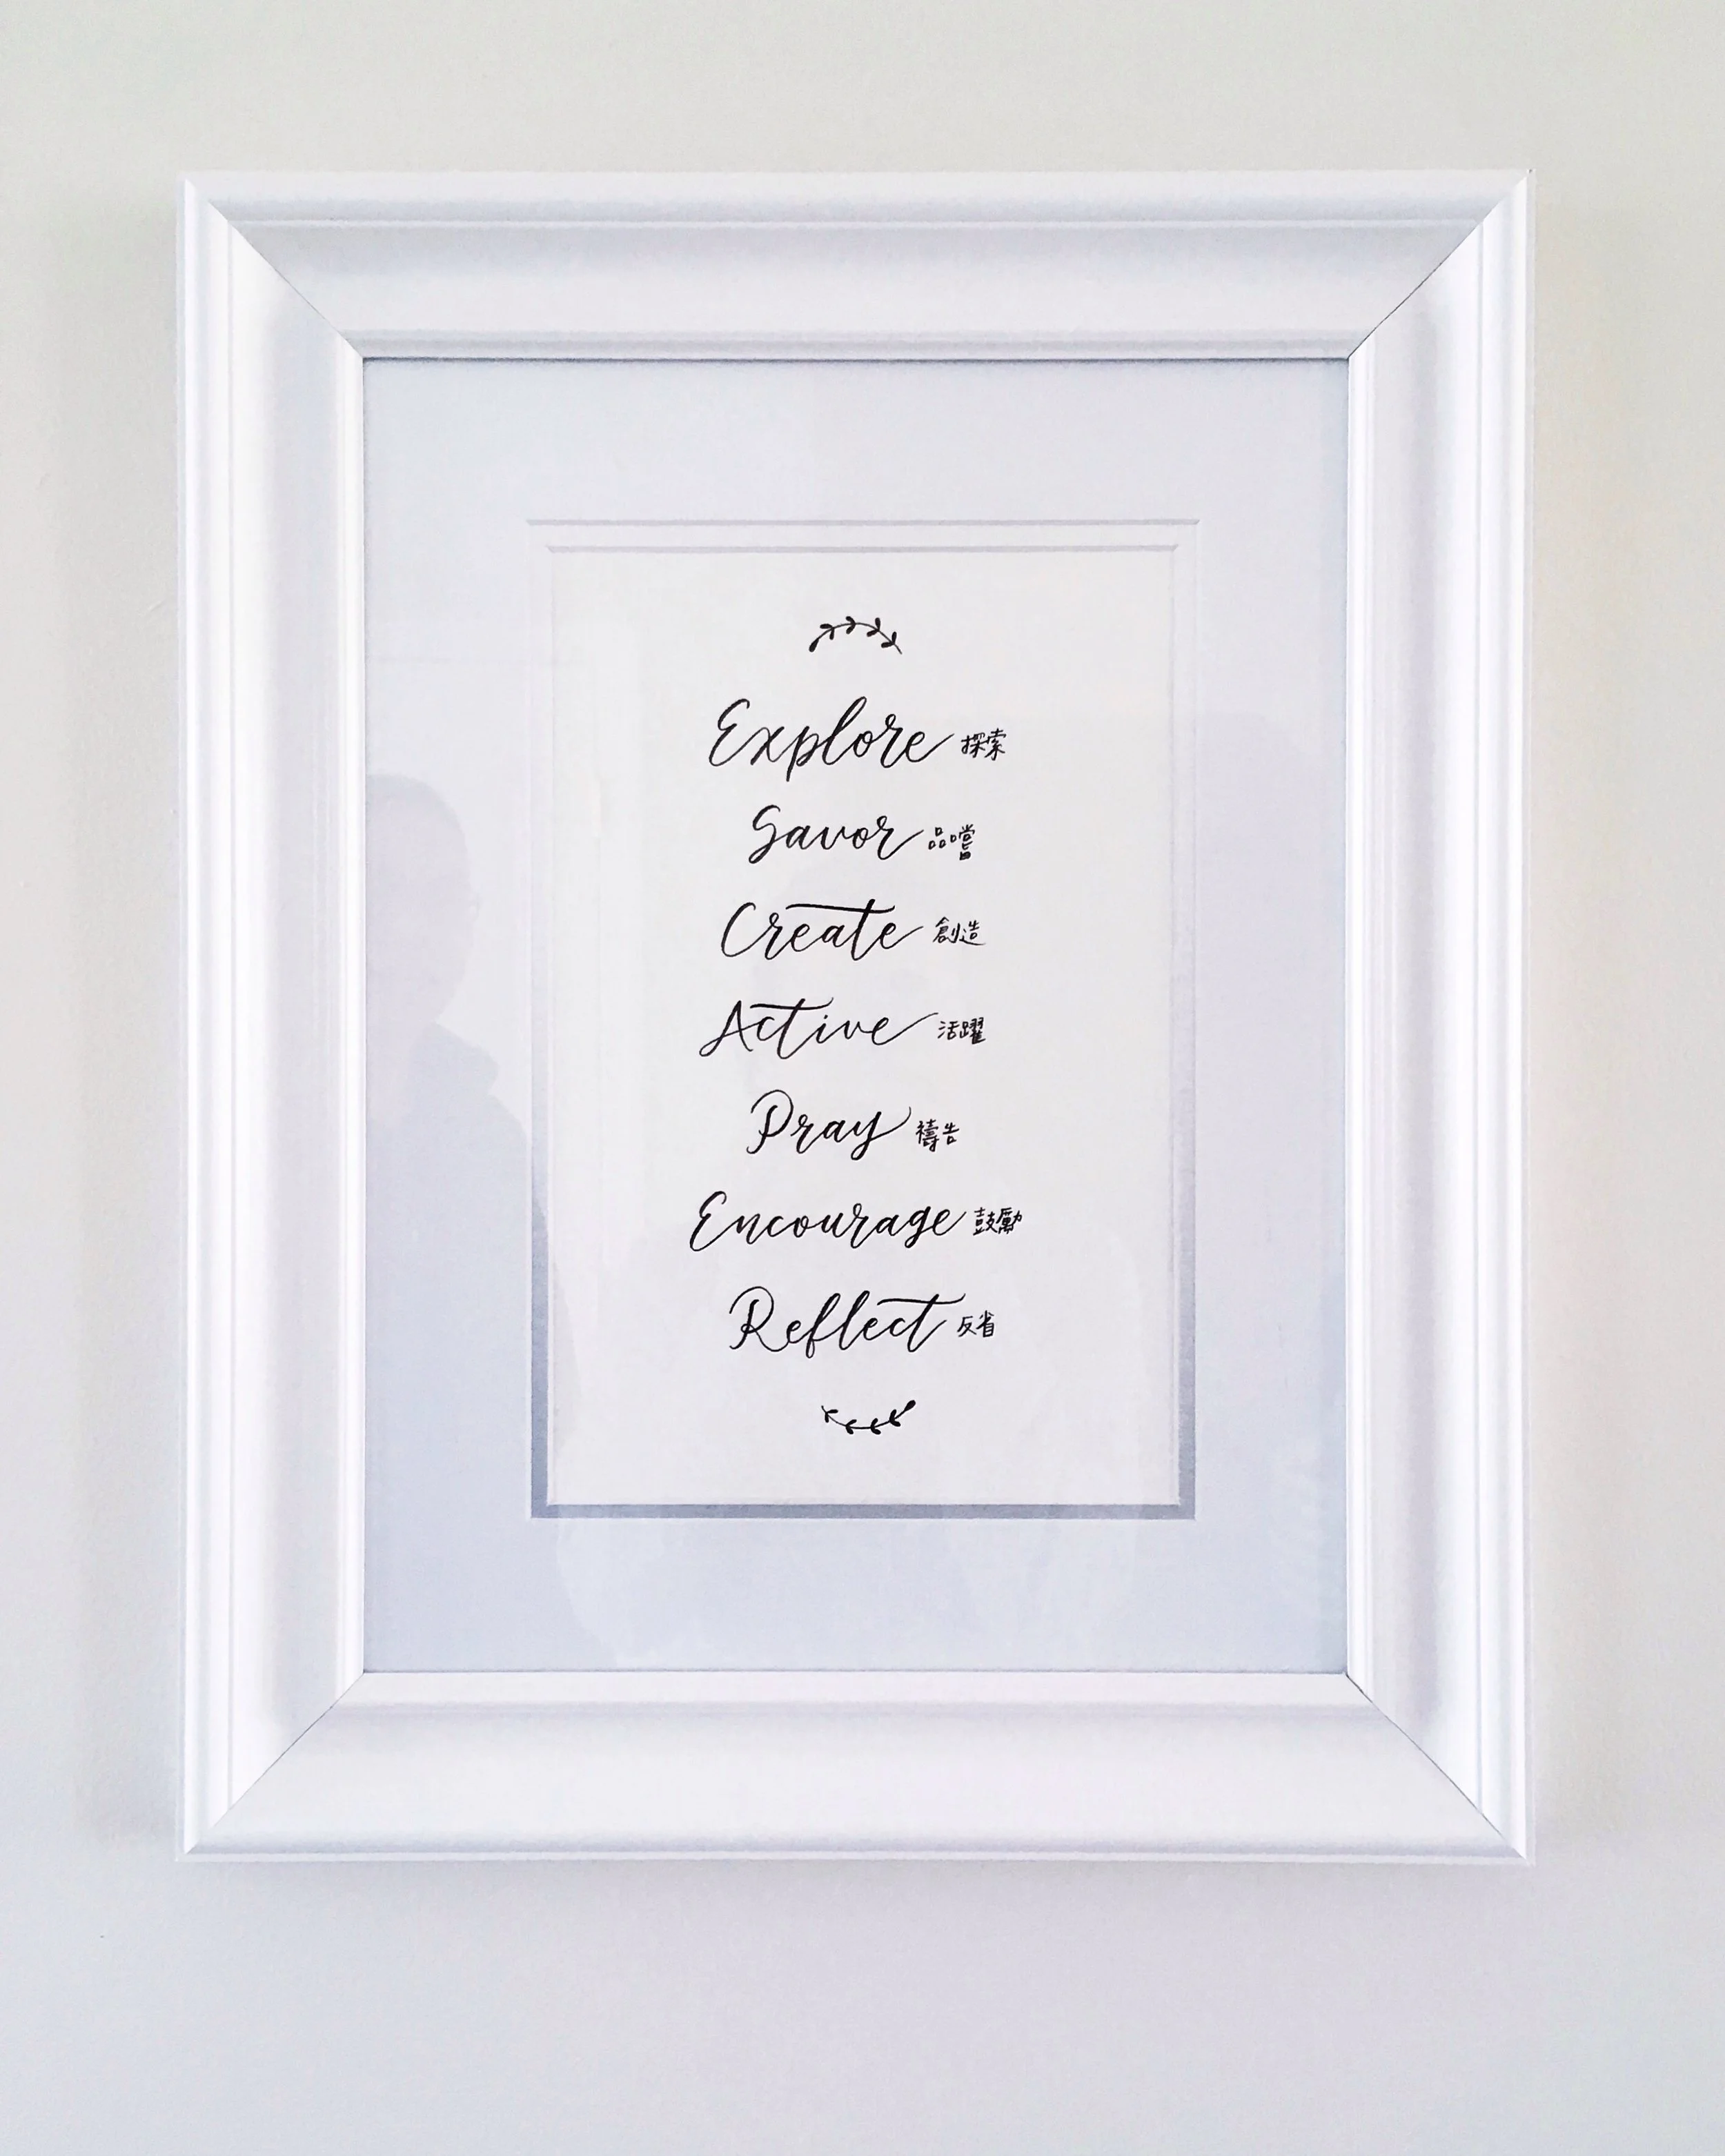 Explore 探索
Savor 品嚐
Create 創造
Active 活躍
Pray 禱告
Encourage 鼓勵
Reflect 反省